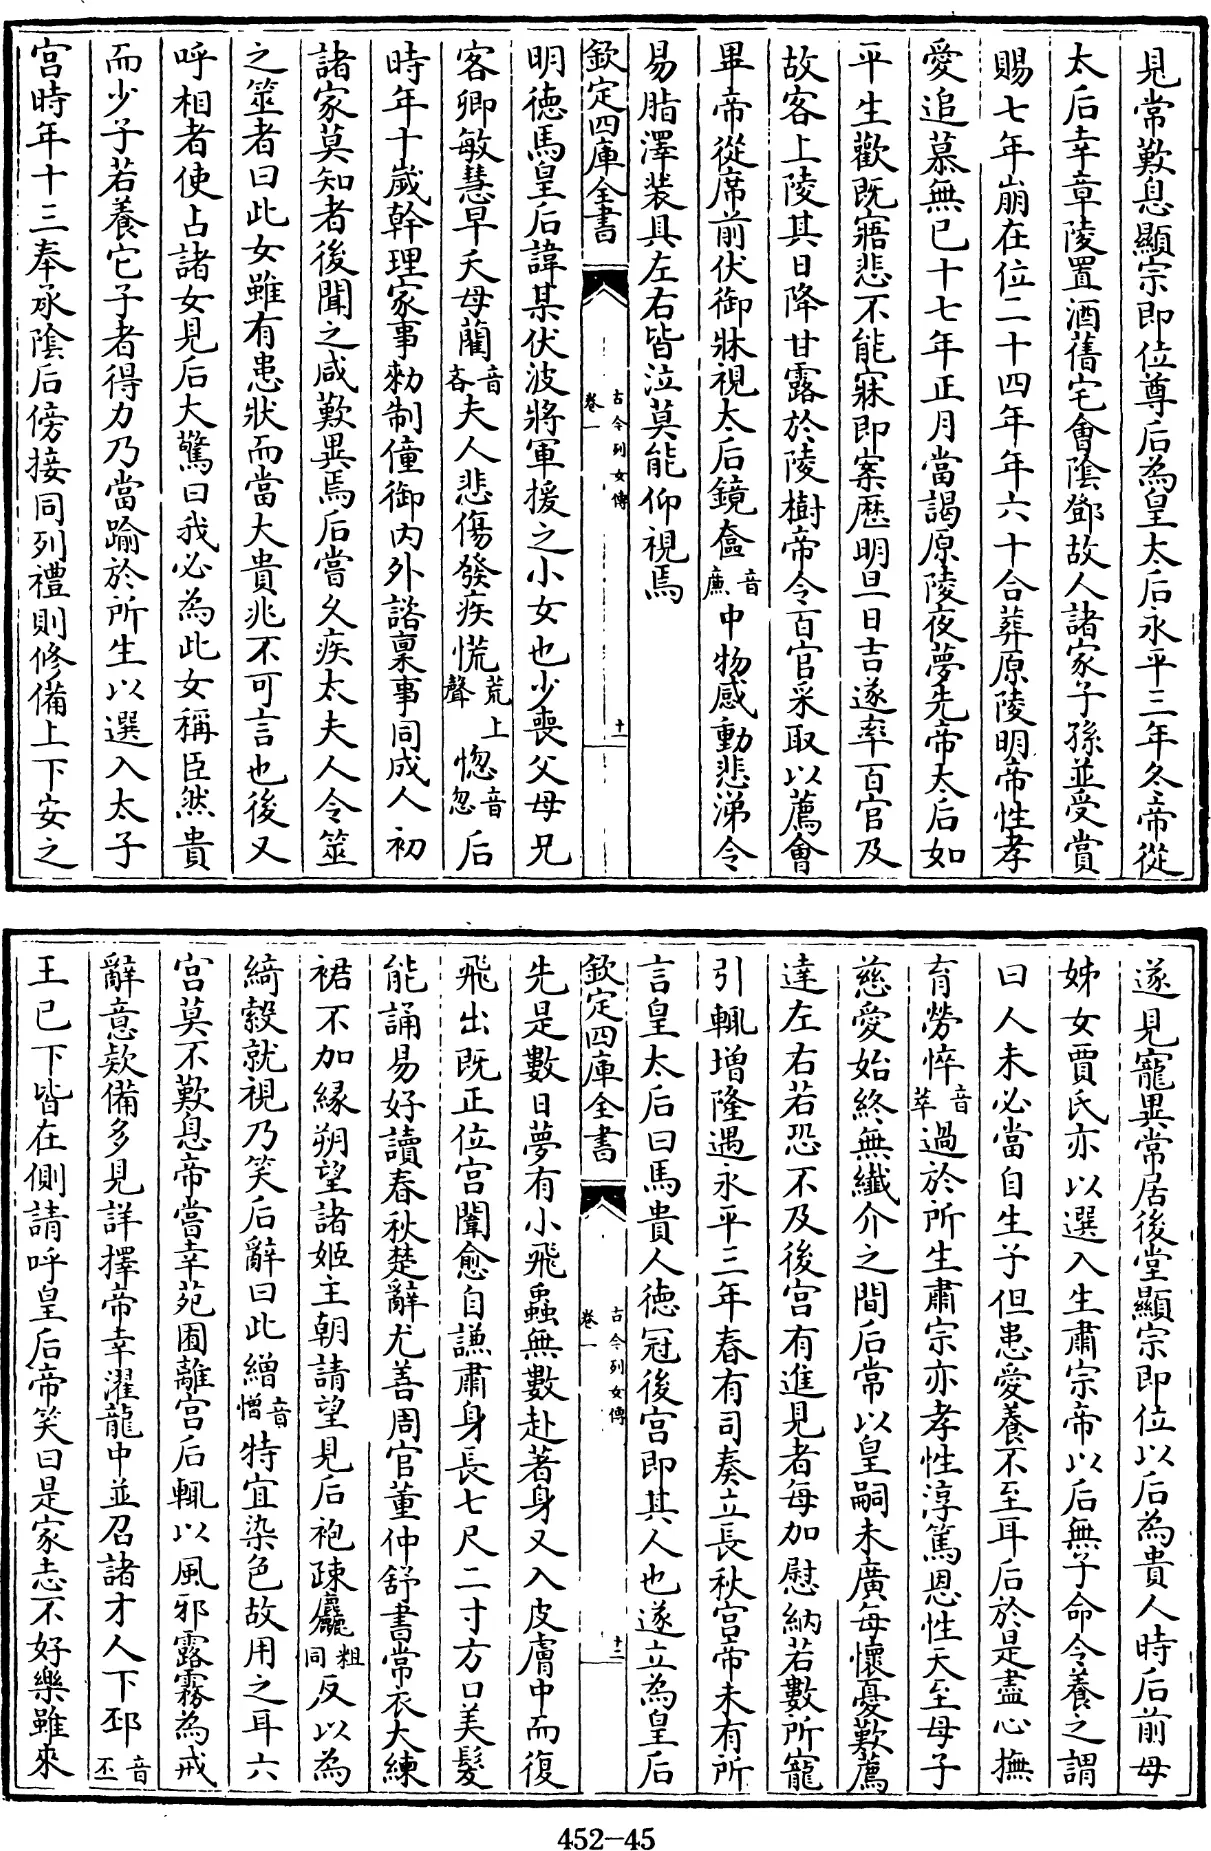 見常歎息顯宗即位尊后為皇太后永平三年冬帝從
太后幸章陵置酒舊宅會陰鄧故人諸家子孫並受賞
賜七年崩在位二十四年年六十合葬原陵明帝性孝
愛追慕無已十七年正月當謁原陵夜夢先帝太后如
平生歡既寤悲不能寐即案歴明旦日吉遂率百官及
故客上陵其日降甘露於陵樹帝令百官采取以薦會
畢帝從席前伏御牀視太后鏡奩音廉中物感動悲涕令
易脂澤裝具左右皆泣莫能仰視焉
欽定四庫全書 古今列女傳 卷一 十一
明徳馬皇后諱某伏波將軍援之小女也少喪父母兄
客卿敏慧早夭母藺音吝夫人悲傷發疾慌荒上聲惚音忽后
時年十歲幹理家事勑制僮御内外諮稟事同成人初
諸家莫知者後聞之咸歎異焉后嘗久疾太夫人令筮
之筮者曰此女雖有患狀而當大貴兆不可言也後又
呼相者使占諸女見后大驚曰我必為此女稱臣然貴
而少子若養它子者得力乃當踰於所生以選入太子
宫時年十三奉承陰后傍接同列禮則修備上下安之
遂見寵異常居後堂顯宗即位以后為貴人時后前母
姊女賈氏亦以選入生肅宗帝以后無子命令養之謂
曰人未必當自生子但患愛養不至耳后於是盡心撫
育勞悴音萃過於所生肅宗亦孝性淳篤恩性天至母子
慈愛始終無纖介之間后常以皇嗣未廣每懷憂歎薦
達左右若恐不及後宫有進見者每加慰納若數所寵
引輒增隆遇永平三年春有司奏立長秋宫帝未有所
言皇太后曰馬貴人徳冠後宫即其人也遂立為皇后
欽定四庫全書 古今列女傳 卷一 十二
先是數日夢有小飛蟲無數赴著身又入皮膚中而復
飛出既正位宫闈愈自謙肅身長七尺二寸方口美髮
能誦易好讀春秋楚辭尤善周官董仲舒書常衣大練
裙不加縁朔望諸姬主朝請望見后袍疎麤粗同反以為
綺縠就視乃笑后辭曰此繒音憎特宜染色故用之耳六
宫莫不歎息帝嘗幸苑囿離宫后輒以風邪露霧為戒
辭意欵備多見詳擇帝幸濯龍中並召諸才人下邳音丕
王已下皆在側請呼皇后帝笑曰是家志不好樂雖來
452-45